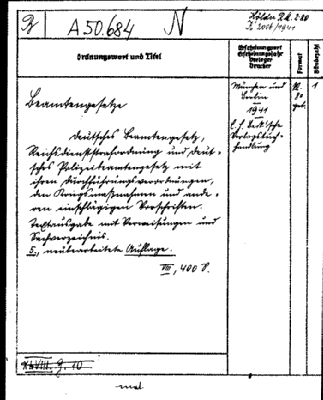 A 50.684
N
Ordnungswort und Titel
Erscheinungsort
Erscheinungsjahr
Verleger
Drucker
Format
Bändezahl
Beamtengesetze
Deutsches Beamtengesetz,
Reichsdienststrafordnung und Deut-
sches Polizeibeamtengesetz mit
ihren Durchführungsverordnungen,
den Kriegsmaßnahmen und ande-
ren einschlägigen Vorschriften.
Textausgabe mit Verweisungen und
Sachverzeichnis.
5., neubearbeitete Auflage.
VIII, 400 S.
München und
Berlin
1941
C. H. Beck'sche
Verlagsbuch-
handlung
Kl.
8°
geb.
1